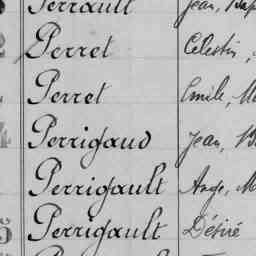 Perrault Jean, Bap
2 Perret Célestin,
Perret Emile, M
4 Perrigaud Jean, B
Perrigault Ange, M
5 Perrigault Désiré